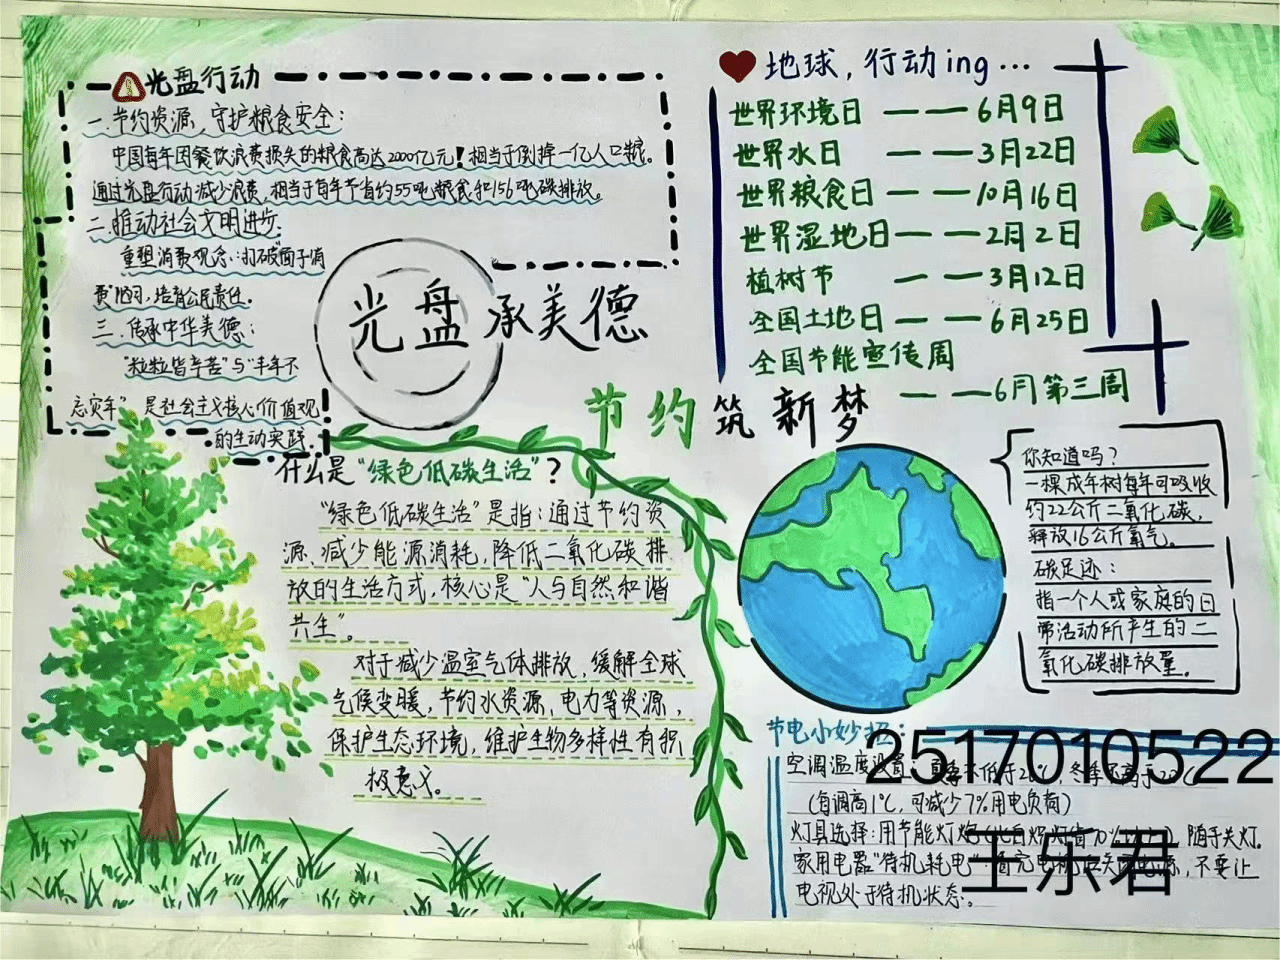 光盘行动
一.节约资源,守护粮食安全:
中国每年因餐饮浪费损失的粮食高达2000亿元!相当于倒掉一亿人口粮。
通过光盘行动减少浪费,相当于每年节省约55吨粮食和156吨碳排放。
二.推动社会文明进步:
重塑消费观念:打破"面子消
费"陋习,培育公民责任。
三.传承中华美德:
"粒粒皆辛苦"与"丰年不
忘灾年"是社会主义核心价值观
的生动实践.
光盘承美德
节约筑新梦
地球,行动ing...
世界环境日——6月9日
世界水日——3月22日
世界粮食日——10月16日
世界湿地日——2月2日
植树节——3月12日
全国土地日——6月25日
全国节能宣传周
——6月第三周
什么是"绿色低碳生活"?
"绿色低碳生活"是指:通过节约资
源、减少能源消耗,降低二氧化碳排
放的生活方式,核心是"人与自然和谐
共生"。
对于减少温室气体排放,缓解全球
气候变暖,节约水资源、电力等资源,
保护生态环境,维护生物多样性有积
极意义。
你知道吗?
一棵成年树每年可吸收
约22公斤二氧化碳,
释放16公斤氧气。
碳足迹:
指一个人或家庭的日
常活动所产生的二
氧化碳排放量。
节电小妙招:
空调温度设置:
(每调高1℃,可减少7%用电负荷)
灯具选择:用节能灯 随手关灯.
家用电器"待机耗电" 不要让
电视处于待机状态。
2517010522
王乐君